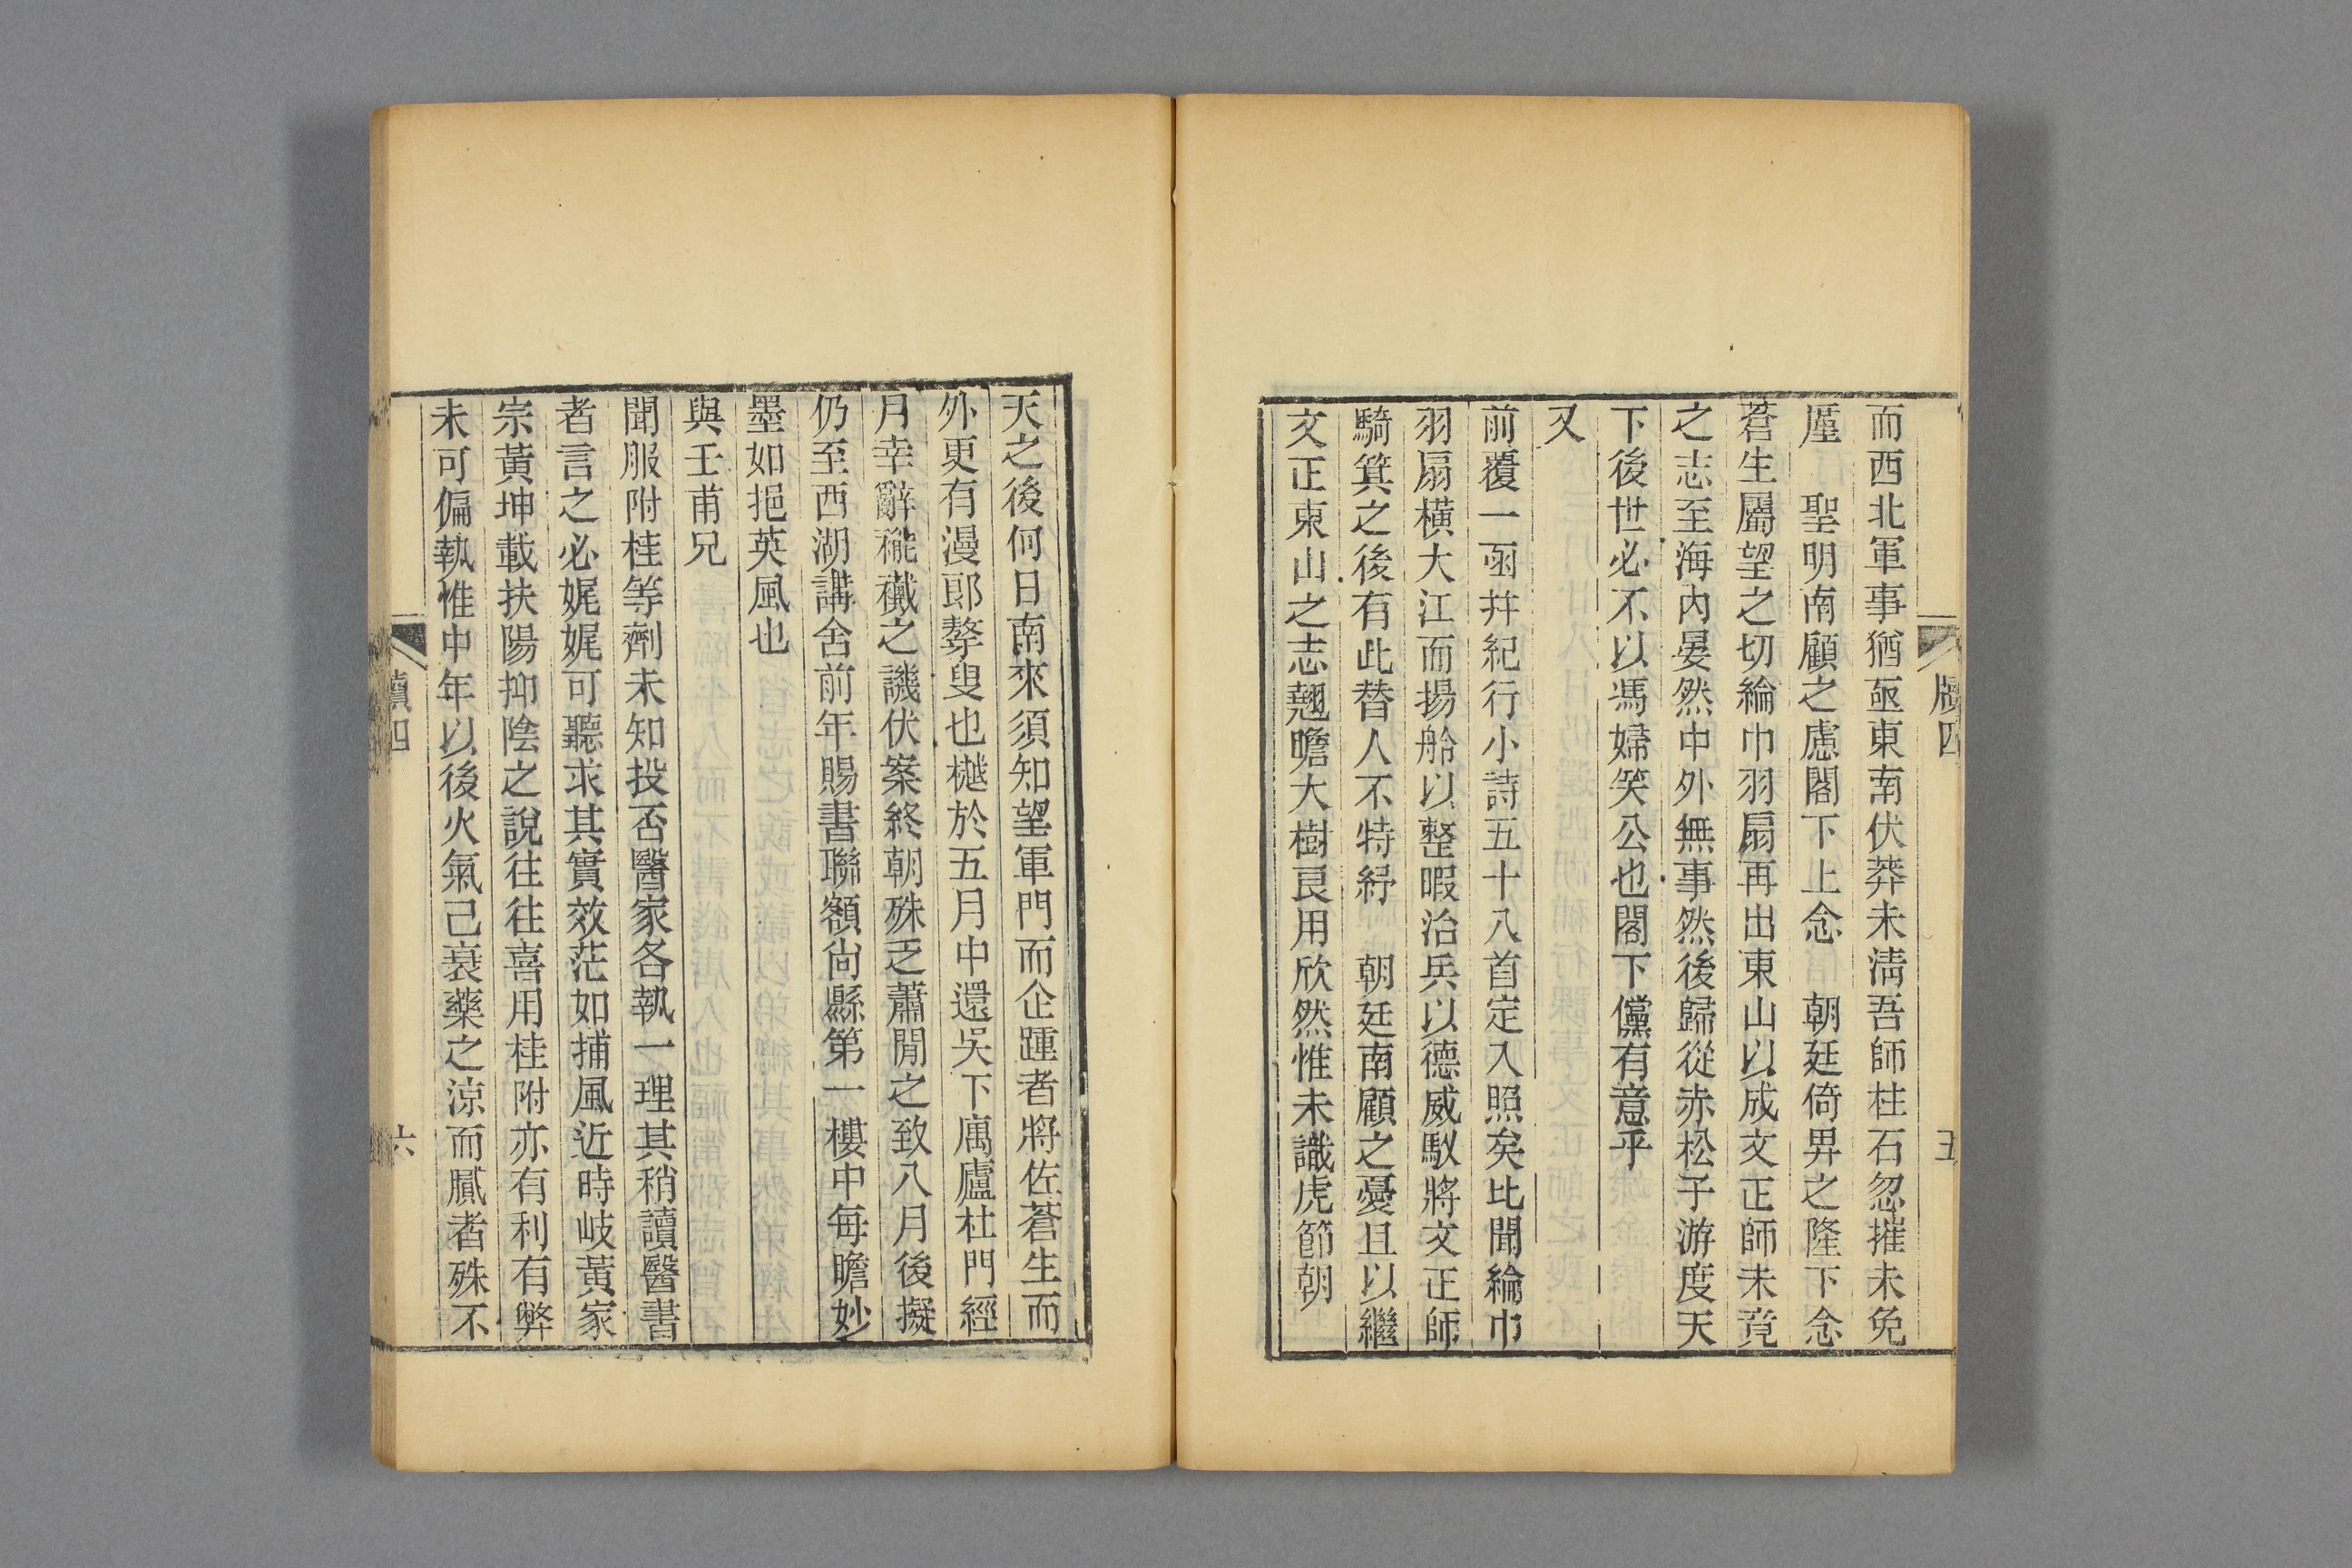 牘四
五
而西北軍事猶亟東南伏莽未淸吾師柱石忽摧未免
厪　聖明南顧之慮閣下上念　朝廷倚畀之隆下念
蒼生屬望之切綸巾羽扇再出東山以成文正師未竟
之志至海內晏然中外無事然後歸從赤松子游度天
下後世必不以馮婦笑公也閣下儻有意乎
又
前覆一函幷紀行小詩五十八首定入照矣比聞綸巾
羽扇橫大江而揚舲以整暇治兵以德威馭將文正師
騎箕之後有此替人不特紓　朝廷南顧之憂且以繼
文正東山之志翹瞻大樹良用欣然惟未識虎節朝
天之後何日南來須知望軍門而企踵者將佐蒼生而
外更有漫郞聱叟也樾於五月中還吳下廡廬杜門經
月幸辭褦襶之譏伏案終朝殊乏蕭閒之致八月後擬
仍至西湖講舍前年賜書聯額尙縣第一樓中每瞻妙
墨如挹英風也
與壬甫兄
聞服附桂等劑未知投否醫家各執一理其稍讀醫書
者言之必娓娓可聽求其實效茫如捕風近時岐黃家
宗黃坤載扶陽抑陰之說往往喜用桂附亦有利有弊
未可偏執惟中年以後火氣已衰藥之涼而膩者殊不
牘四
六